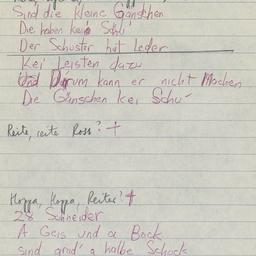 Sind die kleine Gänschen
Die haben kein Schu'
Der Schuster het Leder
Kei' Leisten dazu
Und Darum kann er nicht Machen
Die Gänschen kei Schu'
Reite, reite Ross? +
Hoppa, Hoppa, Reiter? +
28 Schneider
A Geis und a Bock
sind grad' a halbe Schock